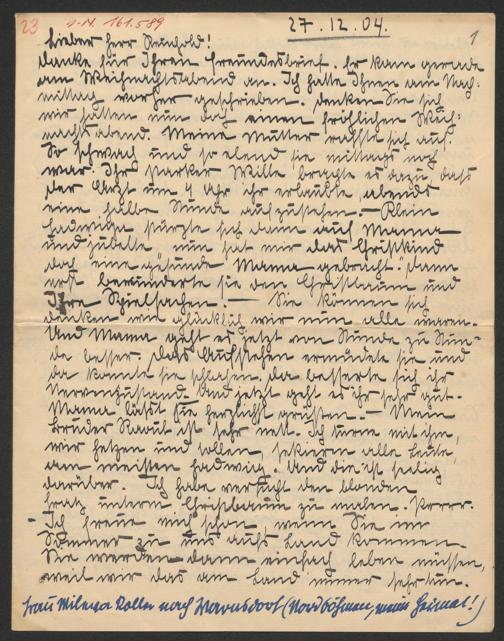 23 I.N. 161.589
27.12.04.
1
Lieber Herr Reinhold!
Danke für Ihren Freundesbrief. Er kam gerade
am Weihnachtsabend an. Ich hatte Ihnen am Nach-
mittag vorher geschrieben. Denken Sie sich
wir hatten nun doch einen fröhlichen Weih-
nachtsabend. Meine Mutter raffte sich auf.
So schwach und so elend sie mittags noch
war. Ihr starker Wille brachte es dazu, dass
der Arzt um 4 Uhr ihr erlaubte, abends
eine halbe Stunde aufzustehen. – Klein
Hadwiga stürzte sich dann auf Mama
und jubelte "nun hat mir das Christkind
doch eine gesunde Mama gebracht." Dann
erst bewunderte sie den Christbaum und
Ihre Spielsachen! – Sie können sich
denken wie glücklich wir nun alle waren.
Und Mama geht es jetzt von Stunde zu Stun-
de besser. Das Aufstehen ermüdete sie und
da konnte sie schlafen. Da besserte sich ihr
Nervenzustand. Und jetzt geht es ihr sehr gut.
Mama lässt Sie herzlichst grüssen. – Mein
Bruder Raoul ist sehr nett. Ich turne mit ihm,
wir hetzen und tollen, sekieren alle Leute,
am meisten Hadwig. Und die ist selig
darüber. Ich habe versucht den blonden
Fratz unterm Christbaum zu malen. Brrrr.
– Ich freue mich schon, wenn Sie im
Sommer zu uns aufs Land kommen.
Sie werden dann einfach leben müssen,
weil wir das am Land immer sehr tun.
Frau Mileva Roller nach Warnsdorf (Nordböhmen, mein Heimat!)